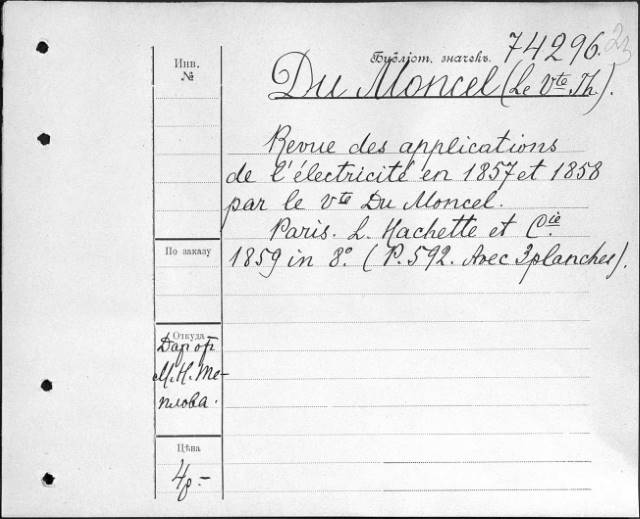 Инв.
№
Библіот. значекъ. 74296.
Du Moncel (Le Vte Th.).
Revue des applications
de l'électricité en 1857 et 1858
par le vte Du Moncel.
Paris. L. Hachette et Cie.
1859 in 8°. (P. 592. Avec 3 planches).
По заказу
Откуда
Дар от
М.Н. Те-
плова.
Цѣна
4р.-